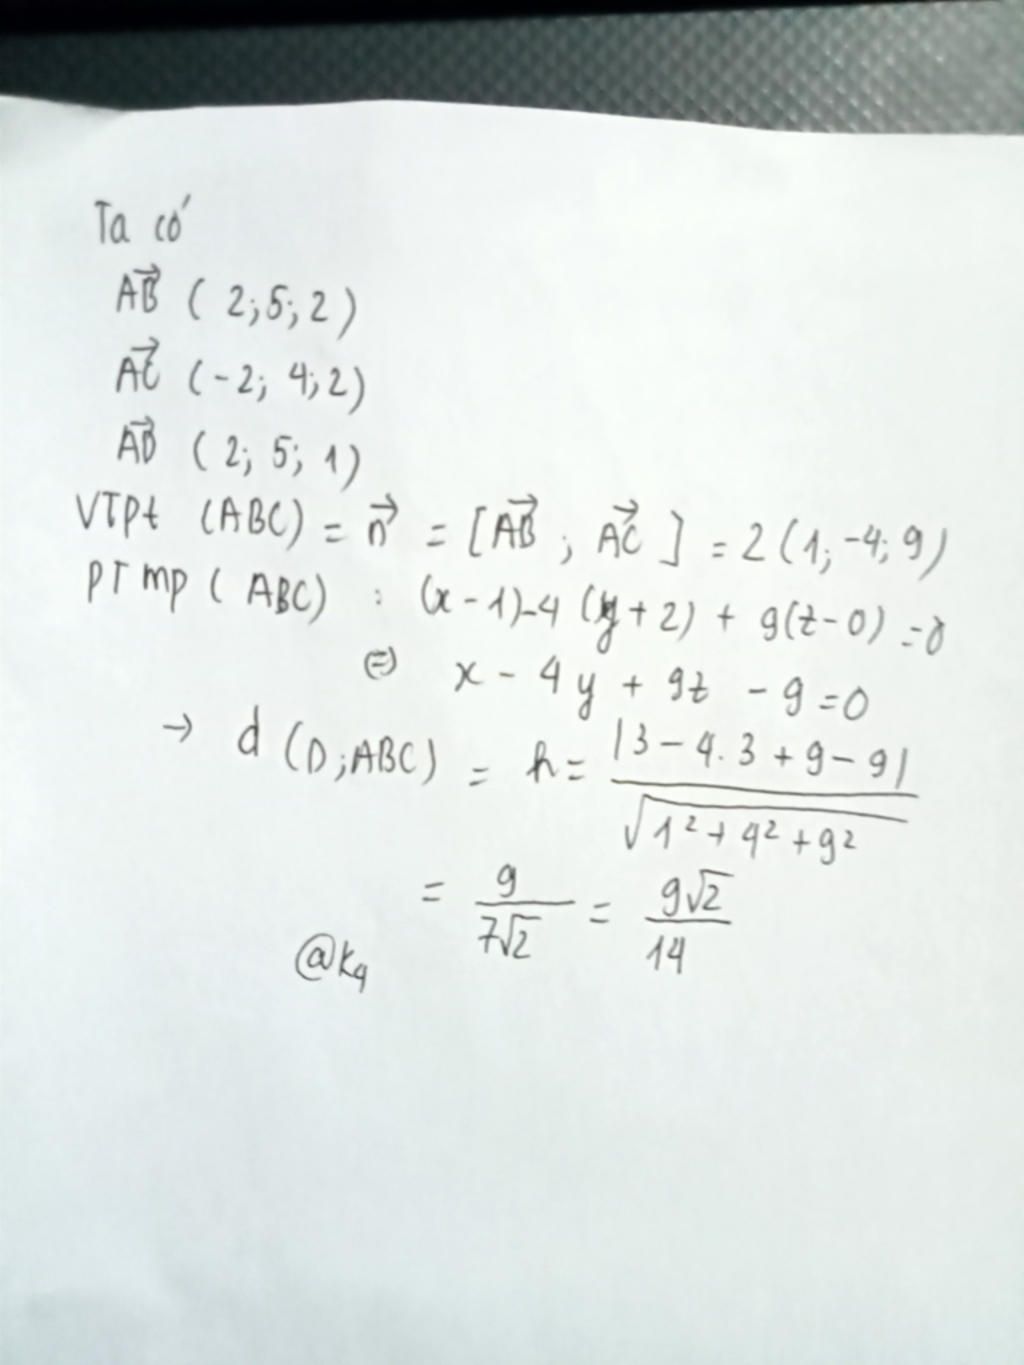 Ta có
AB→ ( 2; 5; 2 )
AC→ ( -2; 4; 2)
AD→ ( 2; 5; 1)
VTPt (ABC) = n→ = [AB→ ; AC→ ] = 2(1; -4; 9)
PT mp ( ABC) : (x - 1) - 4 (y + 2) + 9(z - 0) = 0
⇔ x - 4y + 9z - 9 = 0
→ d (D; ABC) = h = |3 - 4.3 + 9 - 9| / √(1² + 4² + 9²)
= 9 / 7√2 = 9√2 / 14
@K4